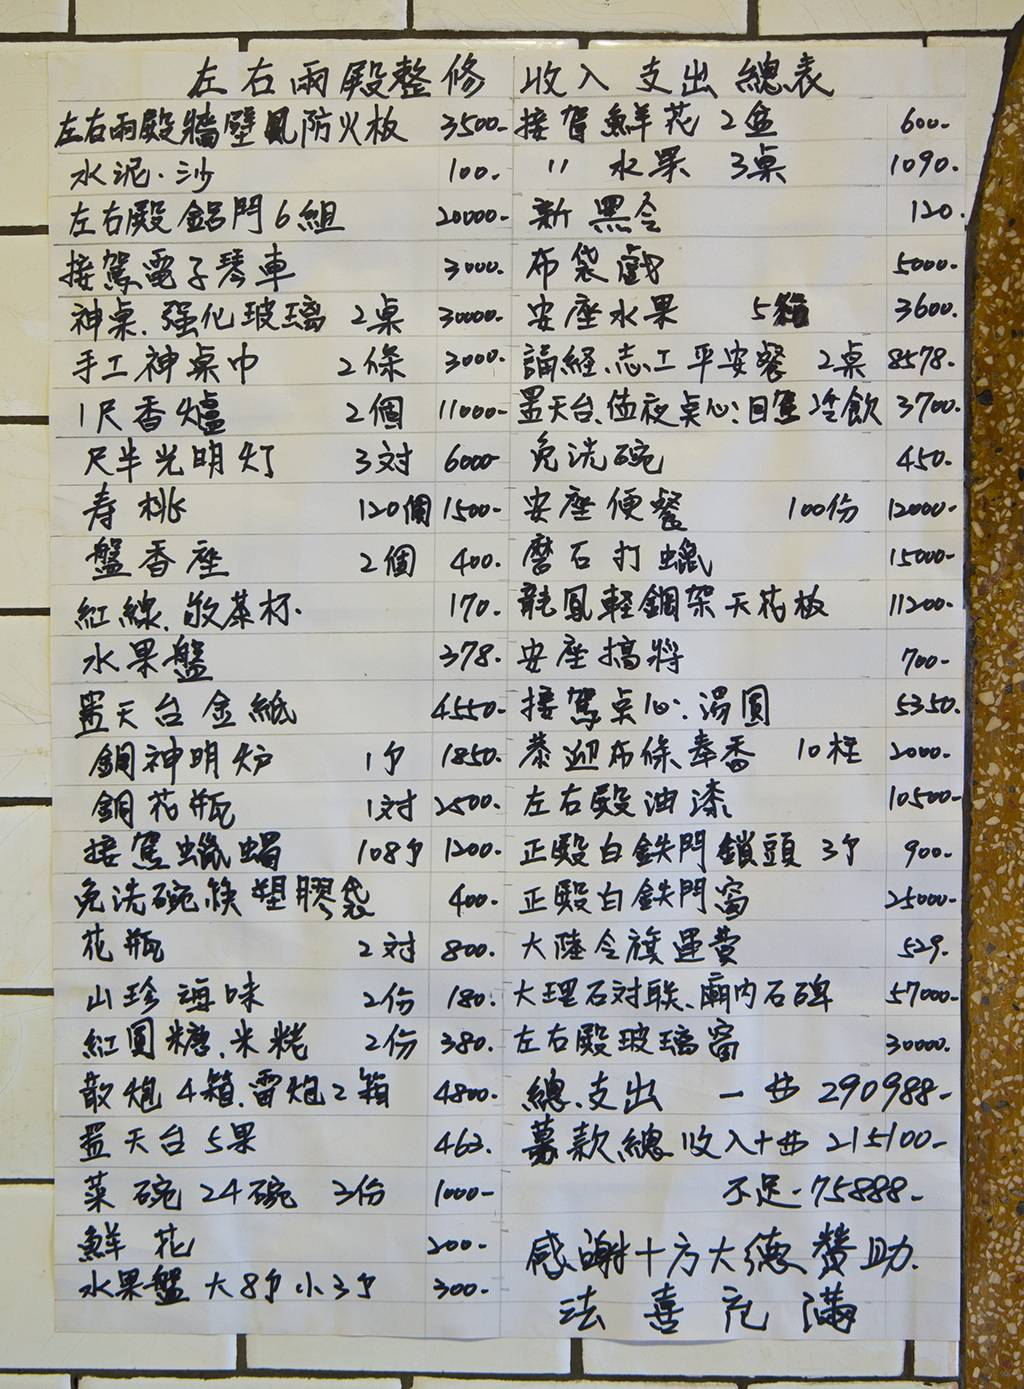 左右兩殿整修 收入支出總表
左右兩殿牆壁風防火板 3500-
水泥.沙 100.
左右殿鋁門6組 20000-
接駕電子琴車 3000.
神桌.強化玻璃 2桌 30000-
手工神桌巾 2條 3000.
1尺香爐 2個 11000-
尺半光明灯 3対 6000-
寿桃 120個 1500-
盤香座 2個 400.
紅線.敬茶杯. 170.
水果盤 378.
置天台金紙 4550-
銅神明炉 1个 1850.
銅花瓶 1対 2500.
接駕蠟蠋 108个 1200.
免洗碗筷塑膠袋 400.
花瓶 2対 800.
山珍海味 2份 180.
紅圓糖.米粩 2份 380.
散炮4箱.雷炮2箱 4800.
置天台5果 462.
菜碗24碗 3份 1000-
鮮花 200.
水果盤大8个小3个 300.
接駕鮮花2盆 600.
〃 水果 3桌 1090.
新黑令 120.
布袋戲 5000.
安座水果 5箱 3600.
誦経.志工平安餐 2桌 8578.
置天台.值夜桌心: 日 冷飲 3700.
免洗碗 450.
安座便餐 100份 12000-
磨石打蠟 15000-
龍鳳軽鋼架天花板 11200-
安座搞將 700-
接駕桌心.湯圓 5350.
恭迎布條.奉香 10柱 2000.
左右殿油漆 10500-
正殿白鉄門鎖頭 3个 900.
正殿白鉄門窗 25000-
大陸令旗運費 529.
大理石対联.廟内石碑 57000-
左右殿玻璃窗 30000.
總.支出 一廿 290988-
募款總收入十廿 215100-
不足-75888-
感謝十方大德贊助.
法喜充滿